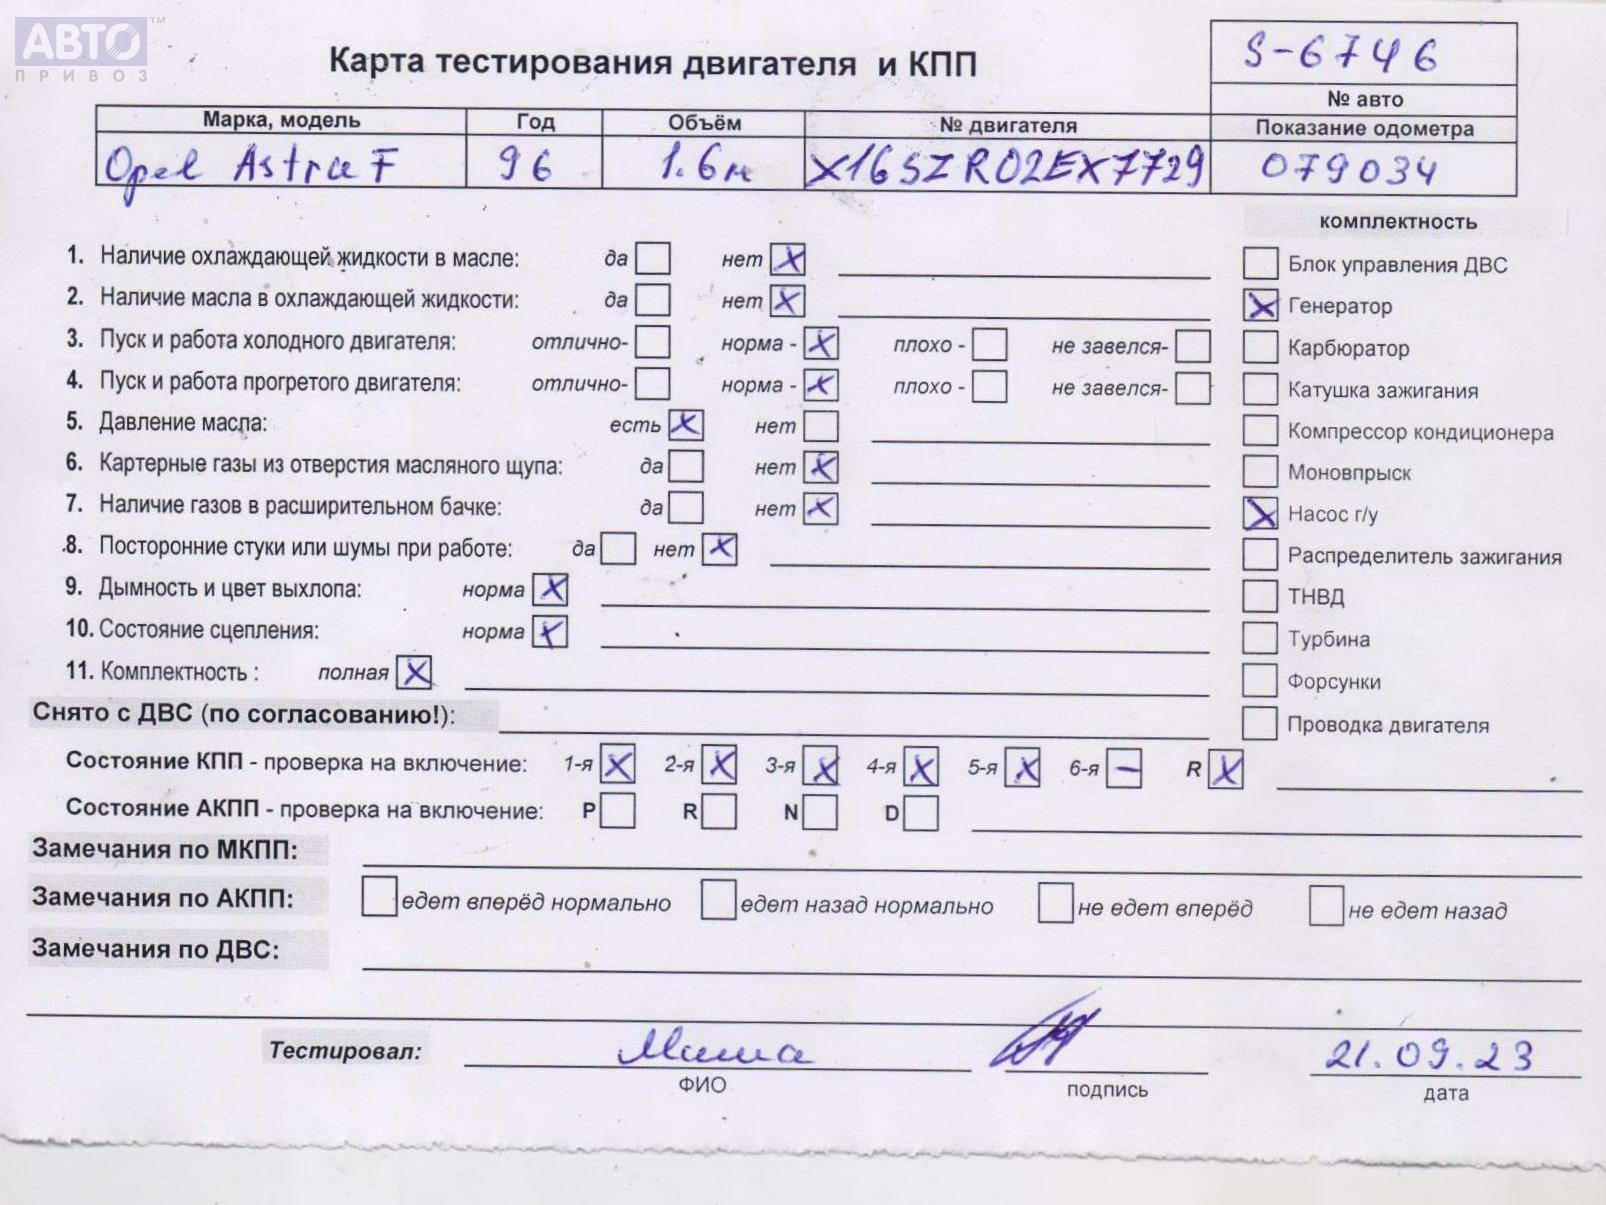 АВТО™
ПРИВОЗ
Карта тестирования двигателя и КПП
S-6746
№ авто
Марка, модель Год Объём № двигателя Показание одометра
Opel Astra F 96 1.6м X16SZR02EX7729 079034
комплектность
1. Наличие охлаждающей жидкости в масле: да нет X
Блок управления ДВС
2. Наличие масла в охлаждающей жидкости: да нет X
X Генератор
3. Пуск и работа холодного двигателя: отлично- норма - X плохо - не завелся-
Карбюратор
4. Пуск и работа прогретого двигателя: отлично- норма - X плохо - не завелся-
Катушка зажигания
5. Давление масла: есть X нет
Компрессор кондиционера
6. Картерные газы из отверстия масляного щупа: да нет X
Моновпрыск
7. Наличие газов в расширительном бачке: да нет X
X Насос г/у
8. Посторонние стуки или шумы при работе: да нет X
Распределитель зажигания
9. Дымность и цвет выхлопа: норма X
ТНВД
10. Состояние сцепления: норма X
Турбина
11. Комплектность : полная X
Форсунки
Снято с ДВС (по согласованию!):
Проводка двигателя
Состояние КПП - проверка на включение: 1-я X 2-я X 3-я X 4-я X 5-я X 6-я – R X
Состояние АКПП - проверка на включение: P R N D
Замечания по МКПП:
Замечания по АКПП: едет вперёд нормально едет назад нормально не едет вперёд не едет назад
Замечания по ДВС:
Тестировал: Миша 21.09.23
ФИО подпись дата